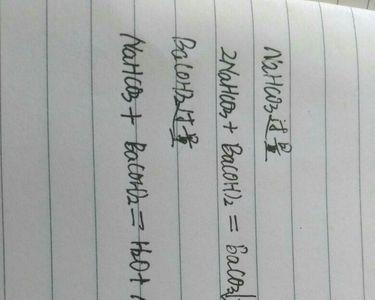 NaHCO3过量
2NaHCO3 + Ba(OH)2 = BaCO3↓
Ba(OH)2过量
NaHCO3 + Ba(OH)2 = H2O +